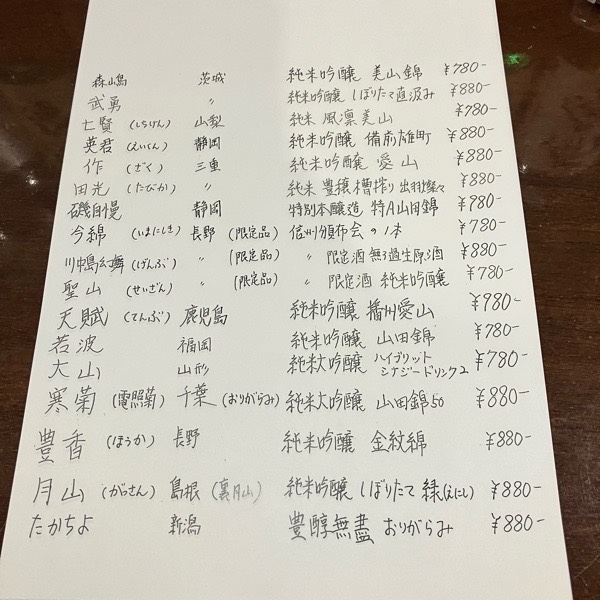 森嶋 茨城 純米吟醸 美山錦 ¥780-
武勇 〃 純米吟醸 しぼりたて直汲み ¥880-
七賢 (しちけん) 山梨 純米 風凛美山 ¥780-
英君 (えいくん) 静岡 純米吟醸 備前雄町 ¥880-
作 (ざく) 三重 純米吟醸 愛山 ¥880-
田光 (たびか) 〃 純米 豊穣槽搾り 出羽燦々 ¥880-
磯自慢 静岡 特別本醸造 特A山田錦 ¥980-
今綿 (いまにしき) 長野 (限定品) 信州頒布会の1本 ¥780-
川中島幻舞 (げんぶ) 〃 (限定品) 〃 限定酒 無ろ過生原酒 ¥880-
聖山 (せいざん) 〃 (限定品) 〃 限定酒 純米吟醸 ¥780-
天賦 (てんぶ) 鹿児島 純米吟醸 播州愛山 ¥980-
若波 福岡 純米吟醸 山田錦 ¥780-
大山 山形 純米大吟醸 ハイブリット シナジードリンク2 ¥780-
寒菊 (電照菊) 千葉 (おりがらみ) 純米大吟醸 山田錦50 ¥880-
豊香 (ほうか) 長野 純米吟醸 金紋綿 ¥880-
月山 (がっさん) 島根 (裏月山) 純米吟醸 しぼりたて 縁(えにし) ¥880-
たかちよ 新潟 豊醇無盡 おりがらみ ¥880-